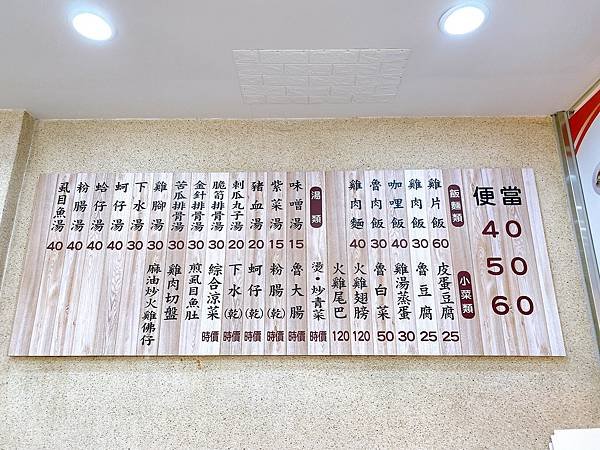 便當
40
50
60
飯麵類
雞片飯 60
雞肉飯 30
咖哩飯 40
魯肉飯 30
雞肉麵 40
湯類
味噌湯 15
紫菜湯 15
豬血湯 20
刺瓜丸子湯 20
脆筍排骨湯 30
金針排骨湯 30
苦瓜排骨湯 30
雞腳湯 30
下水湯 30
蚵仔湯 40
蛤仔湯 40
粉腸湯 40
虱目魚湯 40
小菜類
皮蛋豆腐 25
魯豆腐 25
雞湯蒸蛋 30
魯白菜 50
火雞翅膀 120
火雞尾巴 120
燙·炒青菜 時價
魯大腸 時價
粉腸(乾) 時價
蚵仔(乾) 時價
下水(乾) 時價
綜合涼菜 時價
煎虱目魚肚
雞肉切盤
麻油炒火雞佛仔